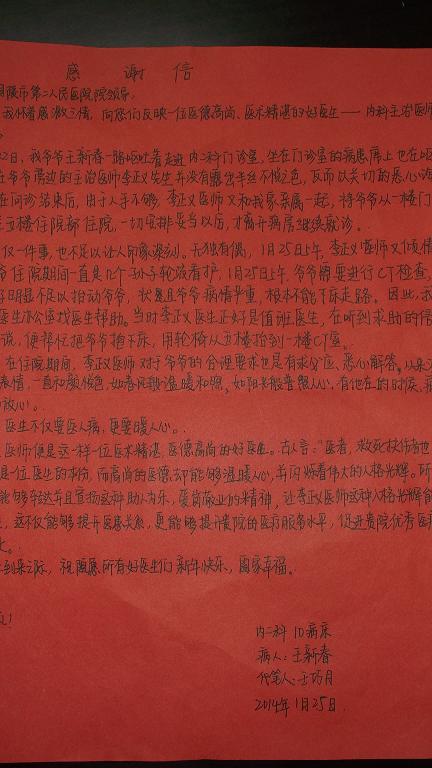 感 谢 信
市第二人民医院院领导:
我怀着感激之情,向您们反映一位医德高尚、医术精湛的好医生——内科主治医师
22日,我爷爷王新春一路呕吐着走进内二科门诊室,坐在门诊室的病患席上也在呕
在爷爷旁边的主治医师李正义先生并没有露出半丝不悦之色,反而以关切的悉心询
在问诊结束后,由于人手不够,李正义医师又和我家亲属一起,将爷爷从一楼门
五楼住院部住院,一切安排妥当以后,才离开病房继续就诊。
仅一件事,也不足以让人印象深刻。无独有偶,1月25日上午,李正义医师又
爷住院期间一直是几个孙子轮流看护,1月25日上午,爷爷需要进行CT检查,
明显不足以抬动爷爷,就是且爷爷病情严重,根本不能下床走路。因此,我
医生办公室找医生帮助。当时李正义医生正好是值班医生,在听到求助的
说,便帮忙把爷爷抬下床,用轮椅从五楼抬到一楼CT室。
在住院期间,李正义医师对于爷爷的合理要求也是有求必应、悉心解答。从来
表情,一直和颜悦色,如春风般温暖和煦,如阳光般普照人心,有他在的时候,病
放心。
医生不仅要医人病,更要暖人心。
医师便是这样一位医术精湛,医德高尚的好医生。古人言:“医者,救死扶伤者也
是一位医生的本份,而高尚的医德却能够温暖人心,并闪烁着伟大的人格光辉。所
能够传达并且宣扬这种助人为乐,爱岗敬业的精神,让李正义医师这种人格光辉能
,这不仅能够提升医患关系,更能够提升贵院的医疗服务水平,促进贵院优秀医
。
到来之际,祝愿所有好医生们新年快乐,阖家幸福。
!
内二科 10病床
病人:王新春
代笔人:王巧月
2014年1月25日.